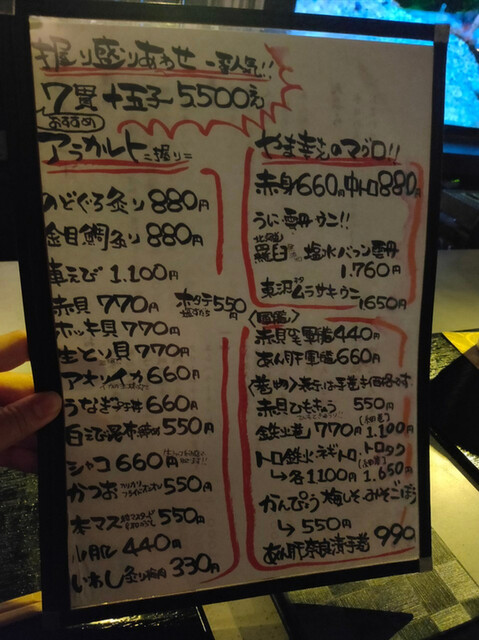 握り盛りあわせ 一番人気!!
7貫+玉子 5,500えん
おすすめ
アラカルト =握り=
のどぐろ炙り 880円
金目鯛炙り 880円
車えび 1,100円
赤貝 770円
ホタテ 塩すだち 550円
ホッキ貝 770円
生とり貝 770円
アオリイカ 660円
うなぎ 660円
白えび昆布締め 550円
シャコ 660円
かつお 550円
本マス 550円
〆鯖 440円
いわし炙り 330円
やま幸さんのマグロ!!
赤身660円 中トロ880円
うに 雲丹 ウニ!!
北海道 羅臼 塩水バフン雲丹
1,760円
東沢 ムラサキウニ
1650円
〈軍艦〉
赤貝 軍艦 440円
あん肝軍艦 660円
〈巻物〉表示は手巻き価格です
赤貝ひもきゅう 550円
鉄火巻 770円 (細巻) 1,100円
トロ鉄火・ネギトロ・トロタク
→各1100円 (細巻) 1,650円
かんぴょう 梅しそ みそごぼう
→550円
あん肝奈良漬手巻 990